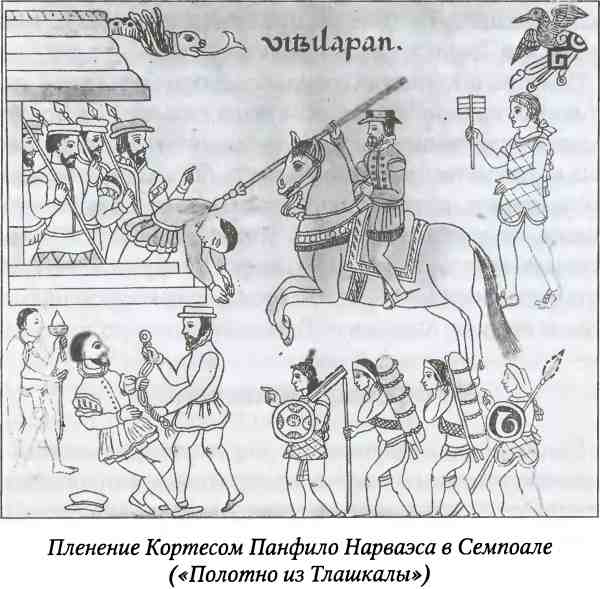 vitzilapan.
Пленение Кортесом Панфило Нарваэса в Семпоале
(«Полотно из Тлашкалы»)